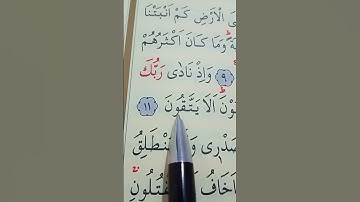 الْاَرْضِ كَمْ اَنْبَتْنَا
وَمَا كَانَ اَكْثَرُهُمْ
﴿٩﴾ وَاِذْ نَادٰى رَبُّكَ
اَلَا يَتَّقُونَ ﴿١١﴾
صَدْرٖى وَلَا يَنْطَلِقُ
اَخَافُ يَقْتُلُونِ